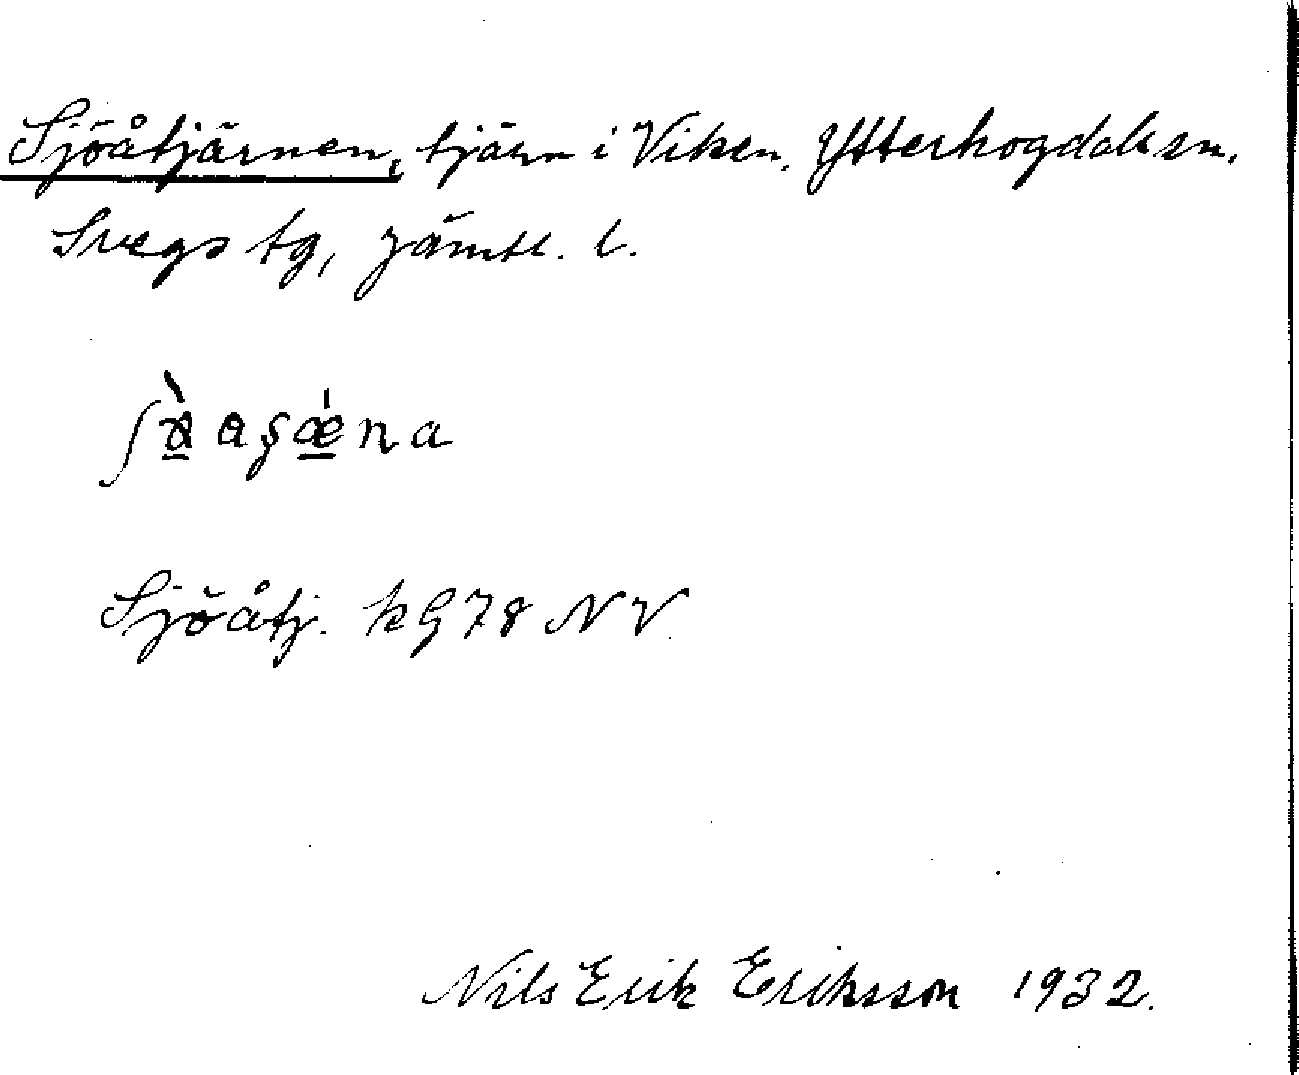 Sjöåtjärnen, tjärn i Viken. Ytterhogdals sn.
Svegs tg, Jämtl. l.
Sjöåtj. kG78 NV.
Nils Erik Eriksson 1932.